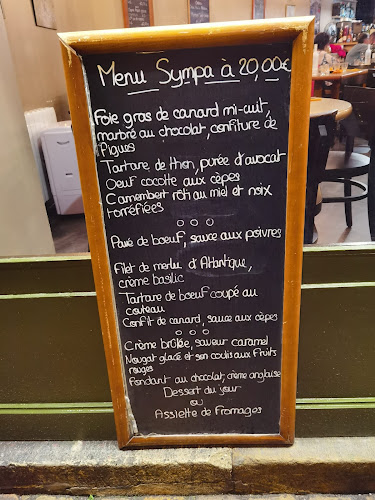 Menu Sympa à 20,00€
Foie gras de canard mi-cuit,
marbré au chocolat, confiture de
Figues
Tartare de thon, purée d'avocat
Oeuf cocotte aux cèpes
Camembert rôti au miel et noix
torréfiées
Pavé de boeuf, sauce aux poivres
Filet de merlu d'Atlantique,
crème basilic
Tartare de boeuf coupé au
couteau
Confit de canard, sauce aux cèpes
Crème brûlée, saveur caramel
Nougat glacé et son coulis aux fruits
rouges
Fondant au chocolat, crème anglaise
Dessert du jour
ou
Assiette de Fromages